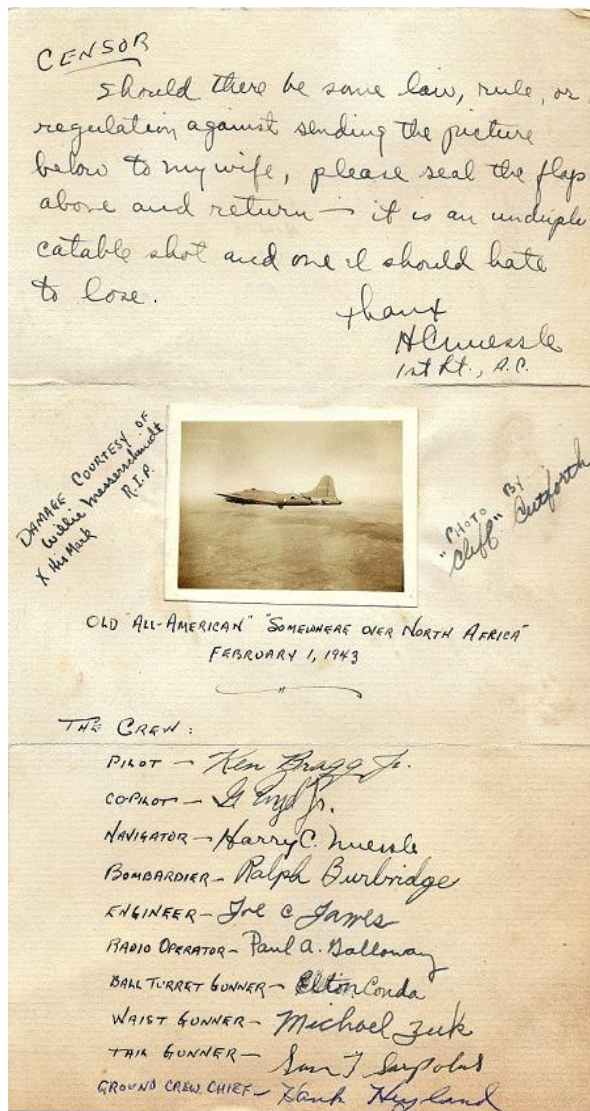 CENSOR
Should there be some law, rule, or
regulation against sending the picture
below to my wife, please seal the flaps
above and return — it is an undupli
catable shot and one I should hate
to lose.
thanx
HCNuessle
1st Lt., A.C.
DAMAGE COURTESY OF
Willie Messerschmidt
R.I.P.
X His Mark
"PHOTO BY
Cliff" Cutforth
OLD "ALL-AMERICAN" "SOMEWHERE OVER NORTH AFRICA"
FEBRUARY 1, 1943
THE CREW:
PILOT — Ken Bragg Jr.
COPILOT — G Jr.
NAVIGATOR — Harry C. Nuessle
BOMBARDIER — Ralph Burbridge
ENGINEER — Joe C James
RADIO OPERATOR — Paul A. Galloway
BALL TURRET GUNNER — Elton Conda
WAIST GUNNER — Michael Zuk
TAIL GUNNER — Sam T Sarpolus
GROUND CREW CHIEF — Hank Hyland